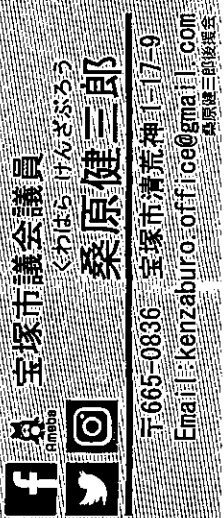 Ameba
宝塚市議会議員
くわはら けんざぶろう
桑原健三郎
〒665-0836 宝塚市清荒神 1-17-9
Email:kenzaburo.office@gmail.com
桑原健三郎後援会